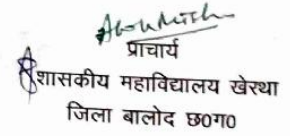 प्राचार्य
शासकीय महाविद्यालय खेरथा
जिला बालोद छ0ग0